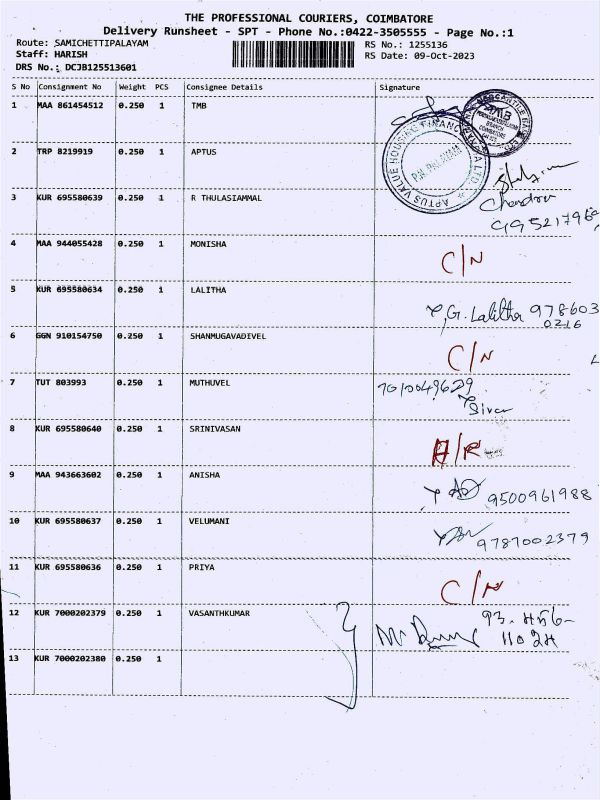 THE PROFESSIONAL COURIERS, COIMBATORE
Delivery Runsheet - SPT - Phone No.:0422-3505555 - Page No.:1
Route: SAMICHETTIPALAYAM RS No.: 1255136
Staff: HARISH RS Date: 09-Oct-2023
DRS No.: DCJB125513601
S No Consignment No Weight PCS Consignee Details Signature
1 MAA 861454512 0.250 1 TMB
2 TRP 8219919 0.250 1 APTUS
APTUS VALUE HOUSING FINANCE
3 KUR 695580639 0.250 1 R THULASIAMMAL
Chandra
4 MAA 944055428 0.250 1 MONISHA C/N
5 KUR 695580634 0.250 1 LALITHA
G. Lalitha 978603
0216
6 GGN 910154750 0.250 1 SHANMUGAVADIVEL C/N
7 TUT 803993 0.250 1 MUTHUVEL 7010049629
Siva
8 KUR 695580640 0.250 1 SRINIVASAN
9 MAA 943663602 0.250 1 ANISHA 9500961988
10 KUR 695580637 0.250 1 VELUMANI 9787002379
11 KUR 695580636 0.250 1 PRIYA C/N
12 KUR 7000202379 0.250 1 VASANTHKUMAR
13 KUR 7000202380 0.250 1